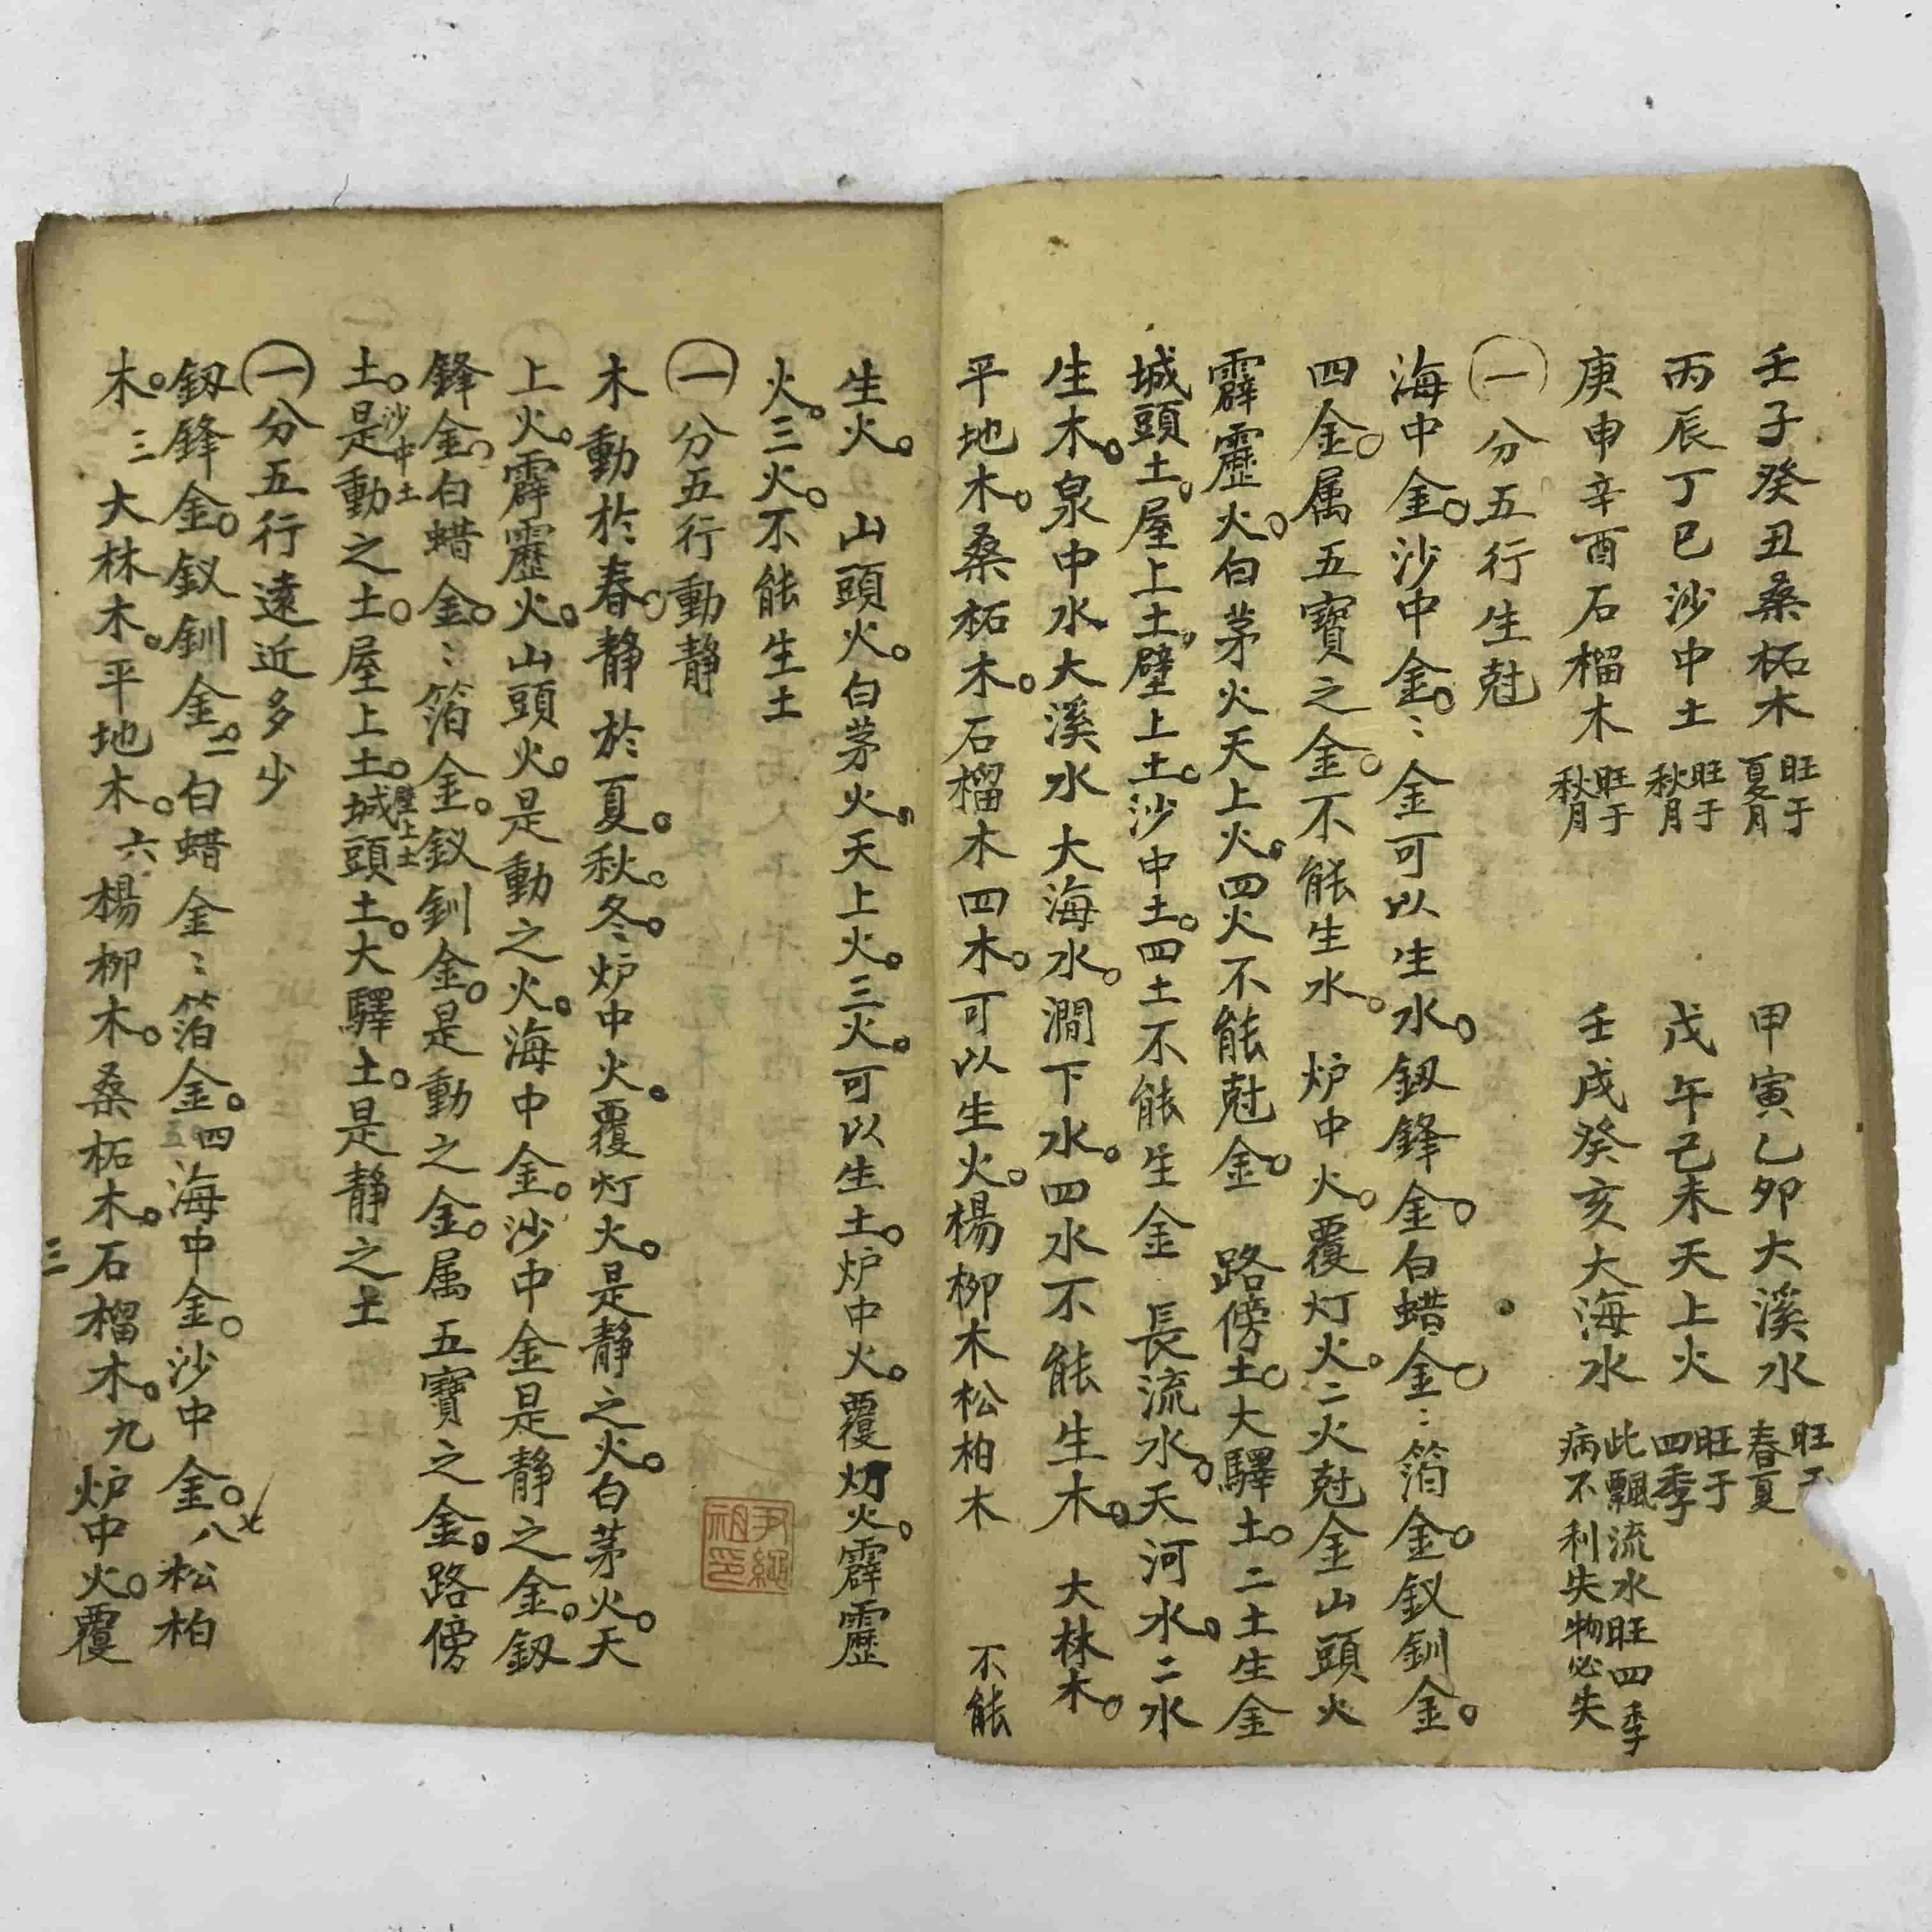 壬子癸丑桑柘木 旺于夏月 甲寅乙卯大溪水 旺于春夏
丙辰丁巳沙中土 旺于秋月 戊午己未天上火 旺于四季
庚申辛酉石榴木 旺于秋月 壬戌癸亥大海水 此飄流水旺四季病不利失物必失
㊀分五行生尅
海中金。沙中金。〻金可以生水。釼鋒金。白蜡金。〻箔金。釵釧金。
四金。属五寶之金。不能生水。炉中火。覆灯火。二火尅金山頭火
霹靂火。白茅火天上火。四火不能尅金。路傍土。大驛土。二土生金
城頭土。屋上土。壁上土。沙中土。四土不能生金 長流水。天河水。二水
生木。泉中水大溪水大海水。澗下水。四水不能生木。大林木。
平地木。桑柘木。石榴木四木。可以生火。楊柳木松柏木 不能
生火。山頭火。白茅火。天上火。三火。可以生土。炉中火。覆灯火。霹靂
火。三火。不能生土
㊀分五行動静
木動於春。静於夏。秋。冬。炉中火。覆灯火。是静之火。白茅火。天
上火。霹靂火。山頭火。是動之火。海中金。沙中金是静之金。釼
鋒金。白蜡金。〻箔金。釵釧金。是動之金。属五寶之金。路傍
土。沙中土是動之土。屋上土。壁上土城頭土。大驛土。是静之土
㊀分五行遠近多少
釼鋒金。釵釧金。二白蜡金〻箔金。四海中金。沙中金。八松柏
木。三大林木。平地木。六楊柳木。桑柘木。石榴木。九炉中火。覆
三
尹繩祖印